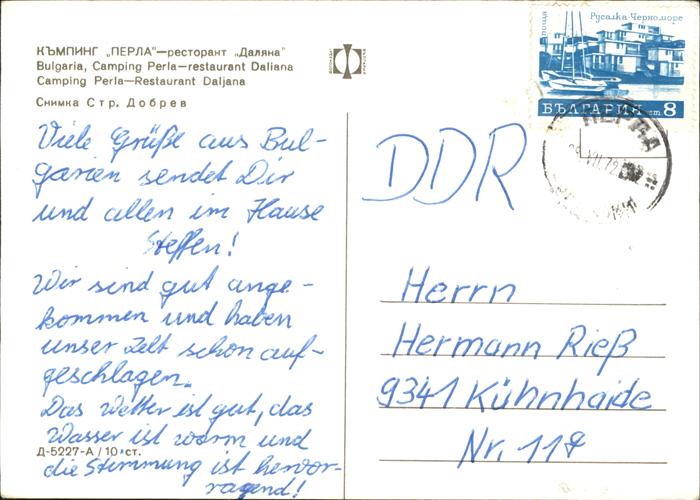 КЪМПИНГ „ПЕРЛА"—ресторант „Даляна"
Bulgaria, Camping Perla—restaurant Daliana
Camping Perla—Restaurant Daljana
Снимка Стр. Добрев
Viele Grüße aus Bul-
garien sendet Dir
und allen im Hause
Steffen!
Wir sind gut ange-
kommen und haben
unser Zelt schon auf-
geschlagen.
Das Wetter ist gut, das
Wasser ist warm und
Д-5227-А / 10 ст.
die Stimmung ist hervor-
ragend!
поща Русалка-Черноморе
БЪЛГАРИЯ ст 8
ПЕРЛА
VII.72
DDR
Herrn
Hermann Rieß
9341 Kühnhaide
Nr. 117